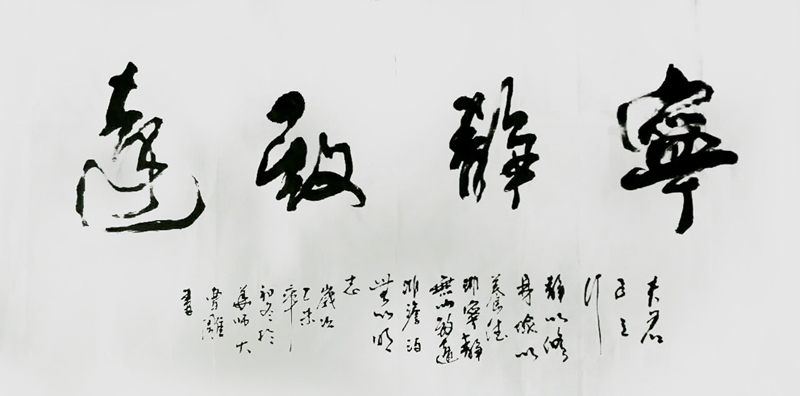 寧靜致遠
夫君
子之
行
静以修
身儉以
養德
非寧静
無以致遠
非澹泊
無以明
志
歲次
乙未
初冬於
華師大
書